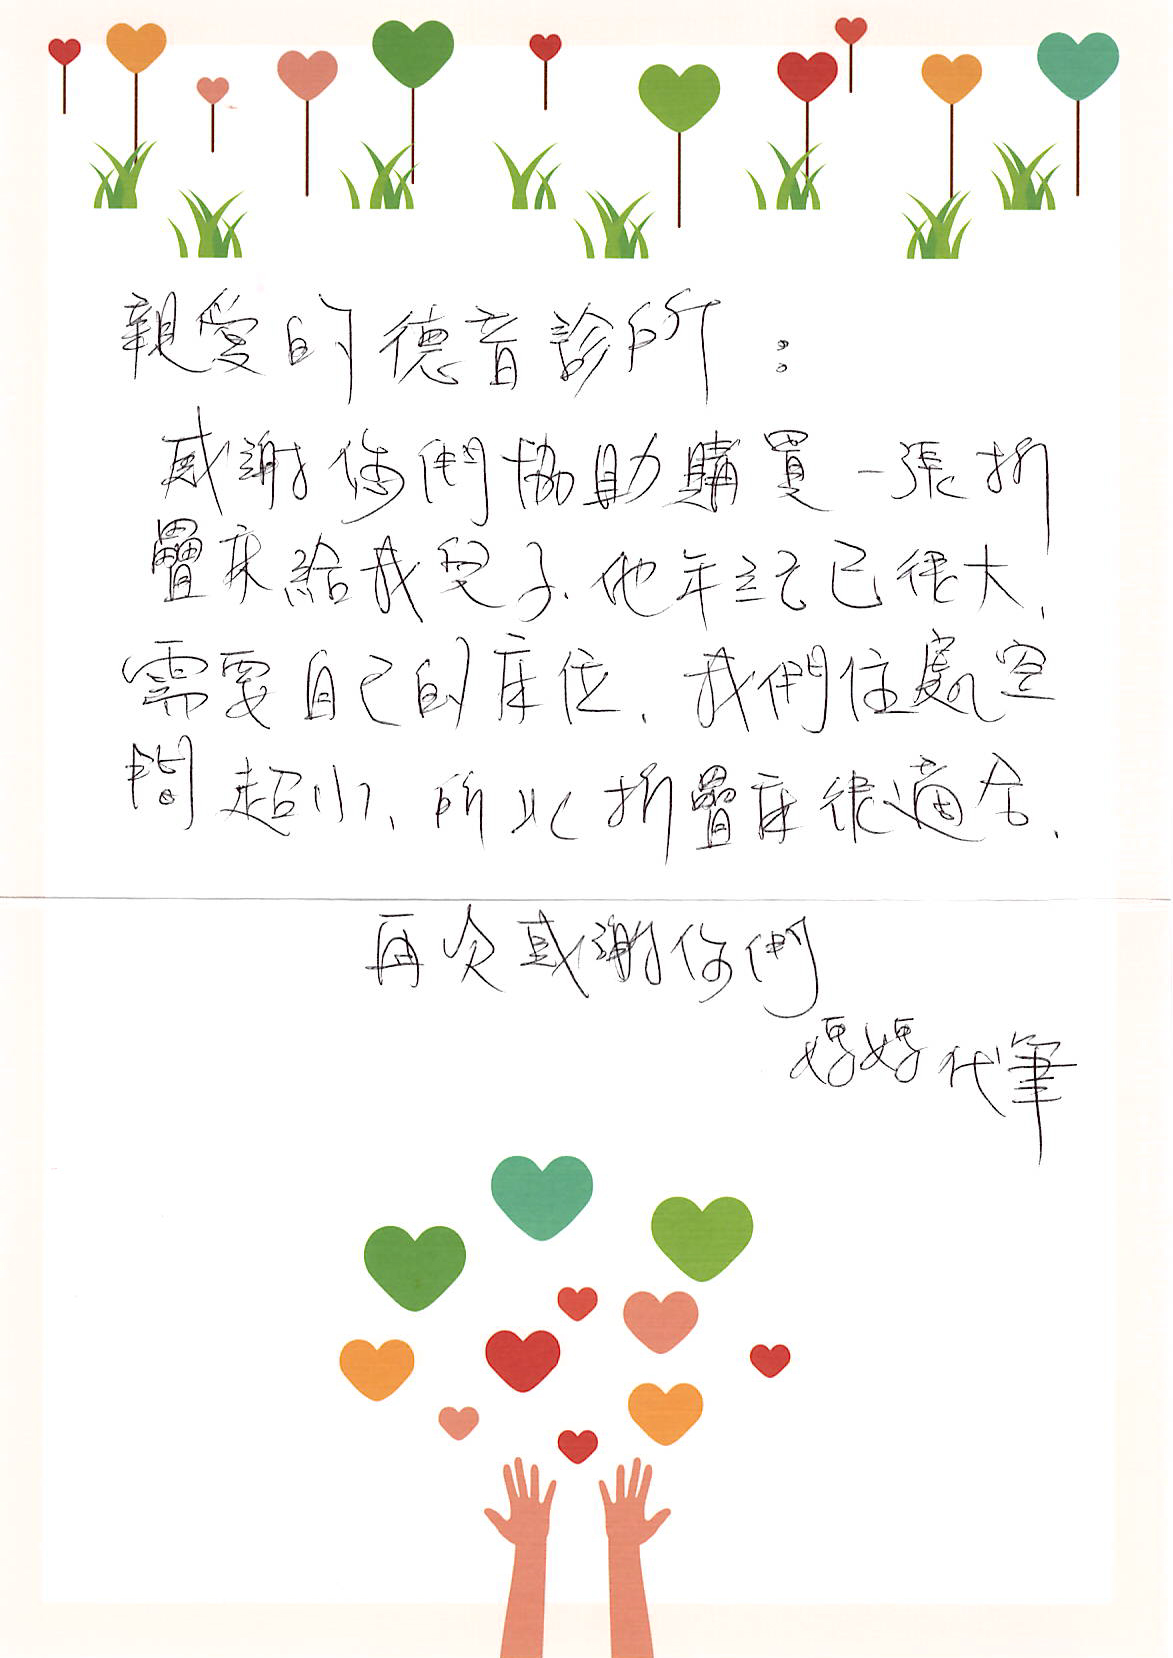 親愛的德音診所：
感謝你們協助購買一張折
疊床給我兒子.他年紀已很大,
需要自己的床位.我們住處空
間超小,所以折疊床很適合.
再次感謝你們
媽媽代筆